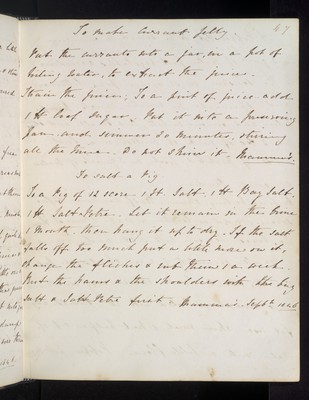 47
To make currant jelly.
Put the currants into a jar, in a pot of
boiling water, to extract the juice.
Strain the juice. To a pint of juice add
1 lb loaf sugar. Put it into a preserving
Pan and simmer 20 minutes, stirring
all the time. Do not skim it. Mamma's.
To salt a Pig
To a Pig of 12 score 1 St. Salt. 1 lb Bay Salt
1 lb Salt-Petre. Let it remain in the brine
1 Month, then hang it up to dry. If the salt
falls off too much put a little more on it,
change the flitches & rub them 1 a week.
Rub the hams & the shoulders with the bay
salt & Salt Petre first. Mamma's. Septr. 1846